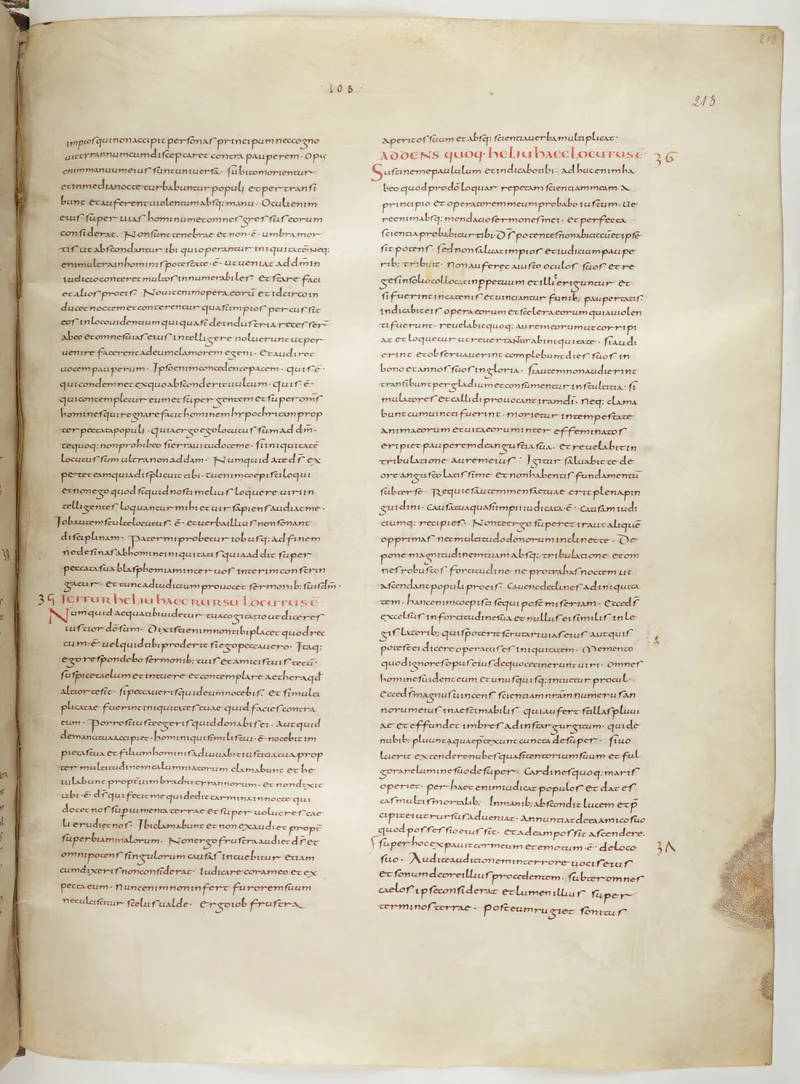 105
213
impios qui non accipit personas principum nec cogno
uit tyrannum cum disceptaret contra pauperem · Opus
enim manuum eius sunt uniuersi · subito morientur
et in media nocte turbabuntur populi et pertransi
bunt et auferent uiolentum absq; manu · Oculi enim
eius super uias hominum et omnes gressus eorum
considerat · Non sunt tenebrae et non · ē · umbra mor
tis ut abscondantur ibi qui operantur iniquitatē Neq;
enim ultra in hominis potestate · ē · ut ueniat ad dm̄ in
iudicio conteret multos innumerabiles · Et stare faci
et alios pro eis · Nouit enim opera eorū et idcirco in
ducet noctem et conterentur quasi impios percussit
eos in loco uidentium qui quasi de industria recesser̄
ab eo et omnes uias eius intellegere noluerunt ut per
uenire facerent ad eum clamorem egeni · Et audiret
uocem pauperum · Ipso enim concedente pacem · quis · ē ·
qui condemnet ex quo absconderit uultum · quis · ē ·
qui contempletur eum et super gentem et super oms̄
homines qui regnare facit hominem hypochritam prop
ter peccata populi · quia ergo ego locutus sum ad dm̄ ·
te quoq; non prohibeo si erraui tu doce me · si iniquitatē
locutus sum ultra non addam · Numquid a te ds̄ ex
petet eam quia displicuit tibi · tu enim coepisti loqui
et non ego quod si quid nosti melius loquere uiri in
tellegentes loquantur mihi et uir sapiens audiat me ·
Iob autem stulte locutus · ē · et uerba illius non sonant
disciplinam · Pater mi probetur iob usq; ad finem
ne desinas ab homine iniquitatis quia addit super
peccata sua blasphemiam inter nos interim constrin
gatur · et tunc ad iudicium prouocet sermonib; suis dm̄ ·
35 Iterum heliu haec rursu locutus ē
Numquid aequa tibi uidetur tua cogitatio ut diceres
iustior dō sum · Dixisti enim non tibi placet quod rec
tum · ē · uel quid tibi proderit si ego peccauero · Itaq;
ego respondebo sermonib; tuis et amicis tuis tecū ·
suspice caelum et intuere et contemplare aethera qd
altior te sit · si peccaueris quid eum nocebis · Et si mula
plicatae fuerint iniquitates tuae quid facies contra
eum · Porro si iuste egeris quid donabis ei · Aut quid
de manu tua accipiet · homini qui similis tui · ē · nocebit im
pietas tua et filium hominis adiuuabit iustitia tua prop
ter multitudinem calumniatorum clamabunt et he
iulabunt propter uim brachii tyrannorum · et non dixit
ubi · ē · ds̄ qui fecit me qui dedit carmina in nocte qui
docet nos super iumenta terrae et super uolucres cae
li erudiet nos · Ibi clamabunt et non exaudiet propt̄
superbiam malorum · Non ergo frustra audiet ds̄ et
omnipotens singulorum causas intuebitur etiam
cum dixeris non considerat · Iudicare coram eo et ex
pecta eum · Nunc enim non infert furorem suum
nec ulciscitur scelus ualde · Ergo iob frustra
aperit os suum et absq; scientia uerba multiplicat ·
36 Addens quoq; heliu haec locutus ē
Sustine me paululum et indicabo tibi · Adhuc enim ha
beo quod pro dō loquar repetam scientiam meam a
principio et operatorem meum probabo iustum · Ue
re enim absq; mendacio sermones mei · et perfecta
scientia probabitur tibi · Ds̄ potentes non abicit cū et ipse
sit potens · sed non saluat impios et iudicium paupe
rib; tribuit · Non auferet a iusto oculos suos et re
ges in solio collocat in ppetuum et illi eriguntur · et
si fuerint in catenis et uinciantur funib; paupertatis
indicabit eis opera eorum et scelera eorum quia uiolen
ti fuerunt · reuelabit quoq; aurem eorum ut corripi
at et loquetur ut reuertantur ab iniquitate · si audi
erint et obseruauerint complebunt dies suos in
bono et annos suos in gloria · si autem non audierint
transibunt per gladium et consumentur in stultitia · si
mulatores et callidi prouocant iram dī · Neq; clama
bunt cum uincti fuerint · morietur in tempestate
anima eorum et uita eorum inter effeminatos
eripiet pauperem de angustia sua · et reuelabit in
tribulatione aurem eius · Igitur saluabit te de
ore angusto latissime · et non habentis fundamentū
subter se · Requies autem mensae tuae erit plena pin
guidini · Causa tua quasi impii iudicata · ē · Causam iudi
ciumq; recipies · Non te ergo superet ira ut aliquē
opprimas nec multitudo donorum inclinet te · De
pone magnitudinem tuam absq; tribulatione · et om
nes robustos fortitudine ne protrahas noctem ut
ascendant populi pro eis · Caue ne declines ad iniquita
tem · hanc enim coepisti sequi post miseriam · Ecce ds̄
excelsus in fortitudine sua et nullus ei similis in le
gislatorib; quis poterit scrutari uias eius aut quis
potest ei dicere operatus es iniquitatem · Memento
quod ignores opus eius de quo cecinerunt uiri · omnes
homines uident eum et unusquisq; intuetur procul ·
Ecce ds̄ magnus uincens scientiam nr̄am numerus an
norum eius inaestimabilis · qui aufert stillas pluui
ae et effundet imbres ad instar gurgitum · qui de
nubib; fluunt quae p̄texunt cuncta desuper · si uo
luerit extendere nubes quasi tentorium suum et ful
gorare lumine suo desuper · Cardines quoq; maris
operiet · per haec enim iudicat populos et dat es
cas multis mortalib; · In manib; abscondit lucem et p̄
cipit ei ut rursus adueniat · Annuntiat de ea amico suo
quod possessio eius sit · et ad eam possit ascendere ·
37 Super hoc expauit cor meum et emotum · ē · de loco
suo · Audite auditionem in terrore uocis eius
et sonum de ore illius procedentem · subter omnes
caelos ipse considerat et lumen illius super
terminos terrae · Post eum rugiet sonitus